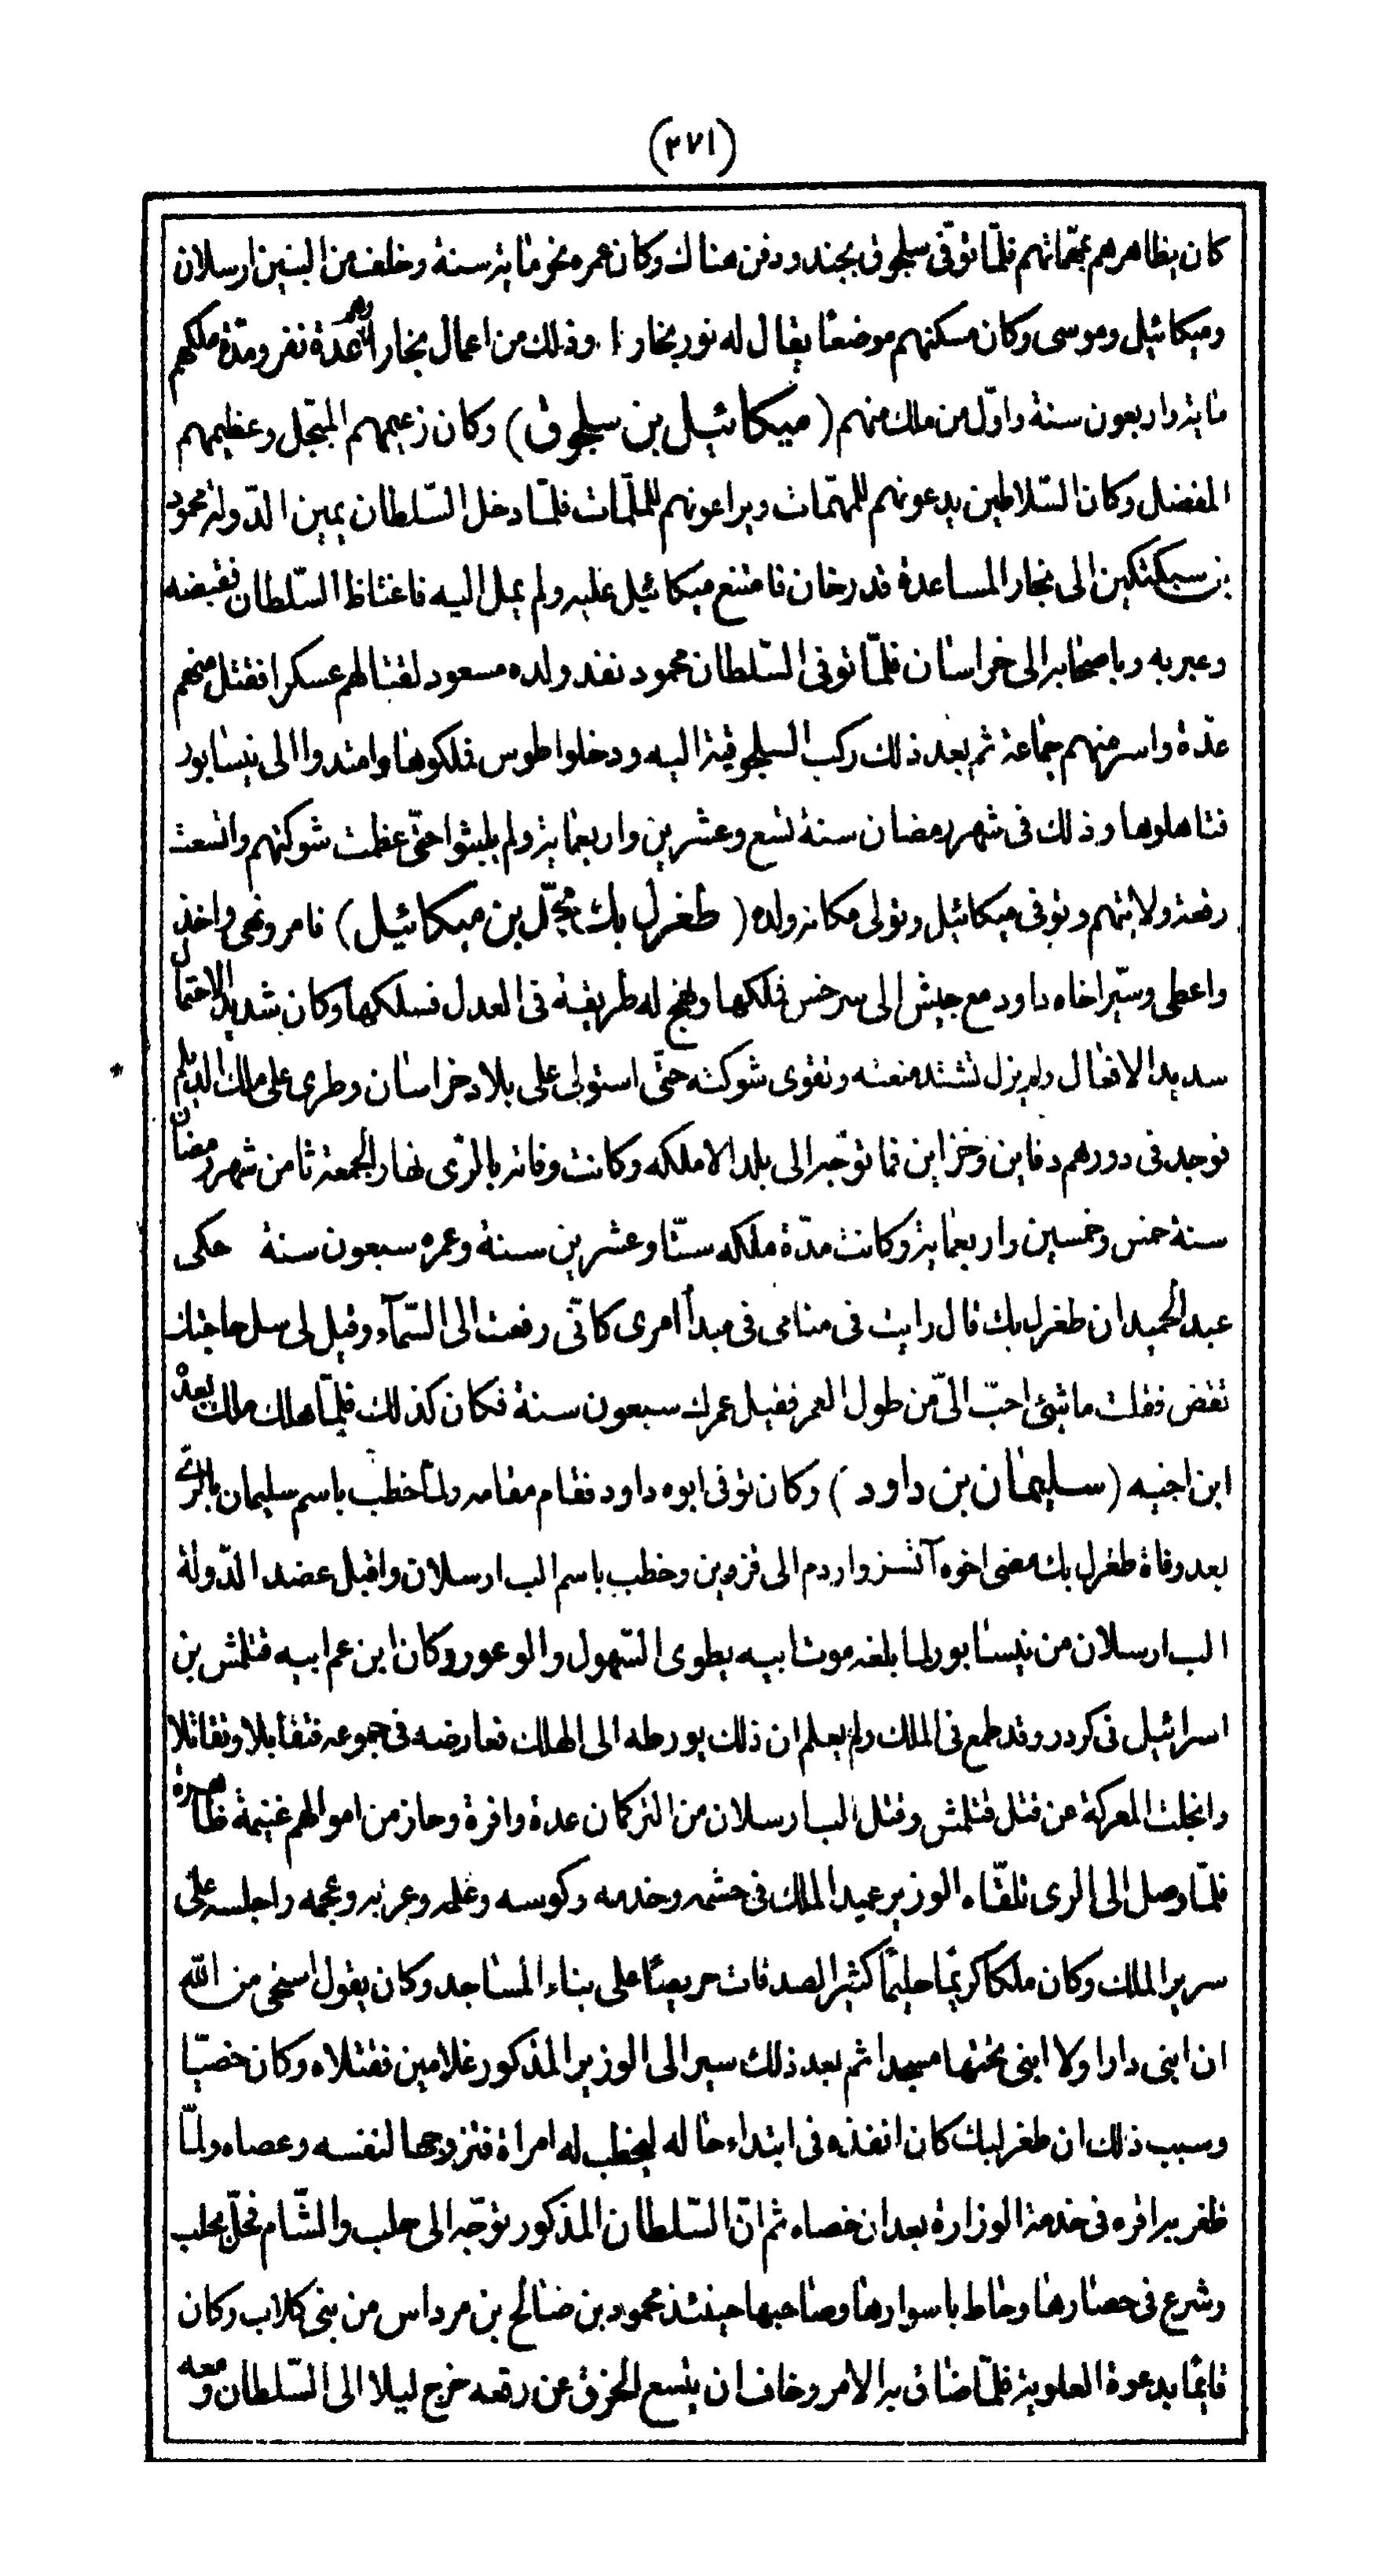 (٢٧١)
كان يظاهرهم بمهماتهم فلمّا توفّى سلجوق بجند ودفن هناك وكان عمره نحو مائة سنة وخلف من البنين ارسلان
وميكائيل وموسى وكان مسكنهم موضعًا يقال له نور بخارا وذلك من اعمال بخارا وهم عدة نفر ومدّة ملكهم
مائة واربعون سنة واوّل من ملك منهم (ميكائيل بن سلجوق) وكان زعيمهم المبجّل وعظيمهم
المفضل وكان السّلاطين يدعونهم للمهمّات ويراعونهم للملمّات فلمّا دخل السّلطان يمين الدّولة محمود
بن سبكتكين الى بخارا لمساعدة قدرخان فامتنع ميكائيل عليه ولم يمل اليه فاغتاظ السّلطان فقبضه
وعبر به وباصحابه الى خراسان فلمّا توفى السّلطان محمود نفد ولده مسعود لقتالهم عسكرا فقتل منهم
عدّة واسر منهم جماعة ثم بعد ذلك ركب السلجوقية اليه ودخلوا طوس فملكوها وامتدوا الى نيسابور
فتاهلوها وذلك فى شهر رمضان سنة تسع وعشرين واربعماية ولم يلبثوا حتّى عظمت شوكتهم واتسعت
رقعة ولايتهم وتوفى ميكائيل وتولى مكانه ولده (طغرل بك محمّد بن ميكائيل) فامر ونهى واخذ
واعطى وسيّر اخاه داود مع جيش الى سرخس فملكها ونهج له طريقة فى العدل فسلكها وكان شديد الاحتمال
سديد الافعال ولم يزل تشتد منعته وتقوى شوكته حتّى استولى على بلاد خراسان وطرى على ملك الديلم
فوجد فى دورهم دفاين وخزاين فما توجّه الى بلد الا ملكه وكانت وفاته بالرّى نهار الجمعة ثامن شهر رمضان
سنة خمس وخمسين واربعماية وكانت مدّة ملكه ستّا وعشرين سنة وعمره سبعون سنة حكى
عبد الحميد ان طغرل بك قال رايت فى منامى فى مبدأ امرى كانّى رفعت الى السّمآء وقيل لى سل حاجتك
تقض فقلت ماشئ احبّ الىّ من طول العمر فقيل عمرك سبعون سنة فكان كذلك فلمّا هلك ملك بعده
ابن اخيه (سليمان بن داود) وكان توفى ابوه داود فقام مقامه ولمّا خطب باسم سليمان بالرّى
بعد وفاة طغرل بك مضى اخوه آتسز واردم الى قزوين وخطب باسم الب ارسلان واقبل عضد الدّولة
الب ارسلان من نيسابور لما بلغه موت ابيه يطوى السّهول والوعور وكان ابن عم ابيه قتلمش بن
اسرائيل فى كردر وقد طمع فى الملك ولم يعلم ان ذلك يورطه الى الهلك فعارضه فى جموعه فتقابلا وتقاتلا
وانجلت المعركة عن قتل قتلمش وقتل الب ارسلان من التركمان عدة وافرة وحاز من اموالهم غنيمة ظاهرة
فلمّا وصل الى الرى تلقّاه الوزير عميد الملك فى حشمه وخدمه وكوسه وعلمه وعربه وعجمه واجلسه على
سرير الملك وكان ملكا كريمًا حليمًا كثير الصدقات حريصًا على بناء المساجد وكان يقول استحى من الله
ان ابنى دارا ولا ابنى بجنبها مسجدا ثم بعد ذلك سير الى الوزير المذكور غلامين فقتلاه وكان خصيّا
وسبب ذلك ان طغرلبك كان انفذه فى ابتداء حاله ليخطب له امراة فتزوجها لنفسه وعصاه ولمّا
ظفر به اقره فى خدمة الوزارة بعد ان خصاه ثم انّ السّلطان المذكور توجّه الى حلب والشّام فحلّ بحلب
وشرع فى حصارها وحاط باسوارها وصاحبها حينئذ محمود بن صالح بن مرداس من بنى كلاب وكان
قايمًا بدعوة العلوية فلمّا ضاق به الامر وخاف ان يتسع الخرق عن رقعه خرج ليلا الى السّلطان ومعه